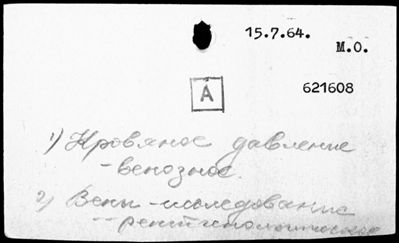 15.7.64.
М.О.
621608
А
1) Кровяное давление
- венозное.
2) Вены - исследование
-- рентгенологическое